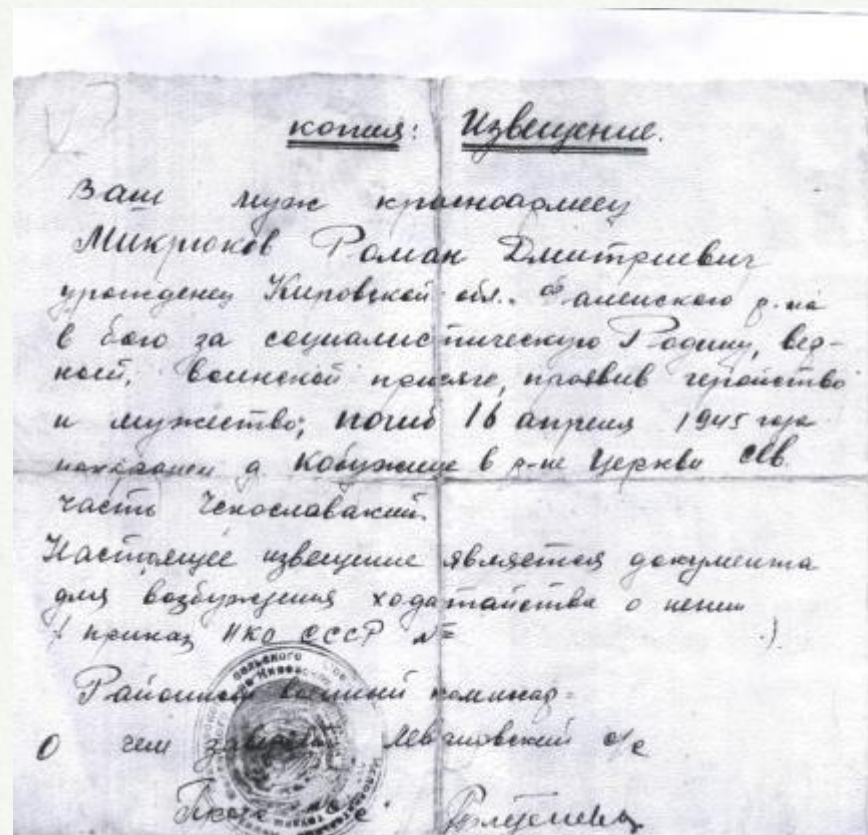 копия: Извещение.
Ваш муж красноармеец
Микрюков Роман Дмитриевич
урожденец Кировской обл. Фаленского р-на
в бою за социалистическую Родину, вер-
ной, воинской присяге, проявив геройство
и мужество; погиб 16 апреля 1945 года
похоронен д. Кобужице в р-не Церкви сев.
часть Чехославакий.
Настоящее извещение является документа
для возбуждения ходатайства о пении
( приказ НКО СССР № )
Районный военный комиссар=
О чем заверяет Левановский с/с